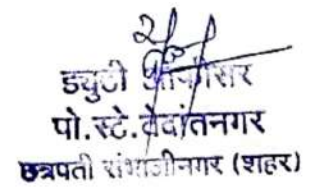 ड्युटी ऑफीसर
पो.स्टे.वेदांतनगर
छत्रपती संभाजीनगर (शहर)